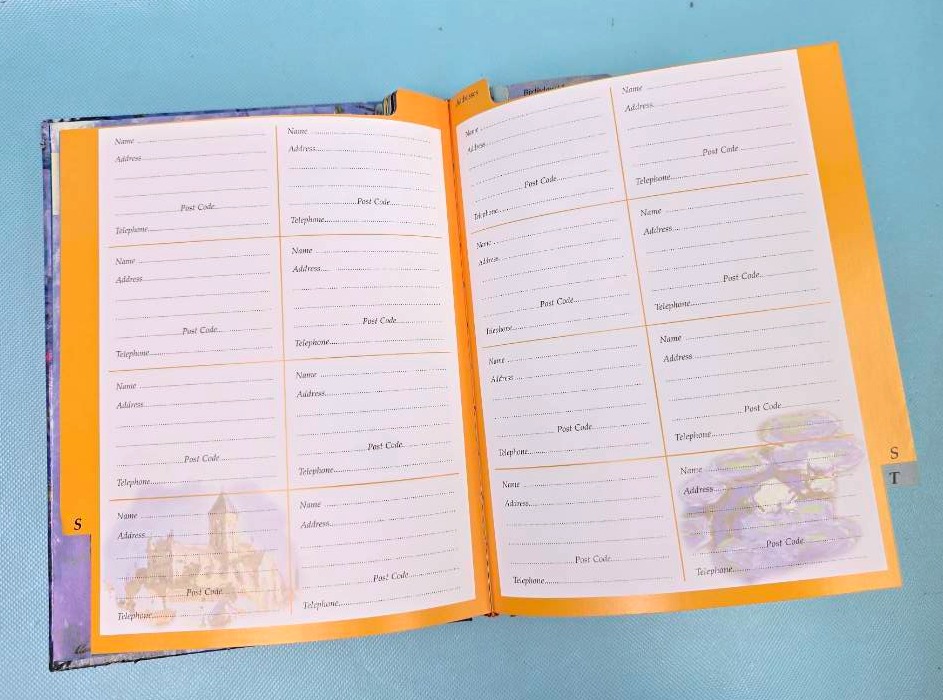 Name
Address
Post Code
Telephone
Name
Address
Post Code
Telephone
Name
Address
Post Code
Telephone
Name
Address
Post Code
Telephone
Name
Address
Post Code
Telephone
Name
Address
Post Code
Telephone
Name
Address
Post Code
Telephone
Name
Address
Post Code
Telephone
S
Name
Address
Post Code
Telephone
Name
Address
Post Code
Telephone
Name
Address
Post Code
Telephone
Name
Address
Post Code
Telephone
Name
Address
Post Code
Telephone
Name
Address
Post Code
Telephone
Name
Address
Post Code
Telephone
Name
Address
Post Code
Telephone
S
T